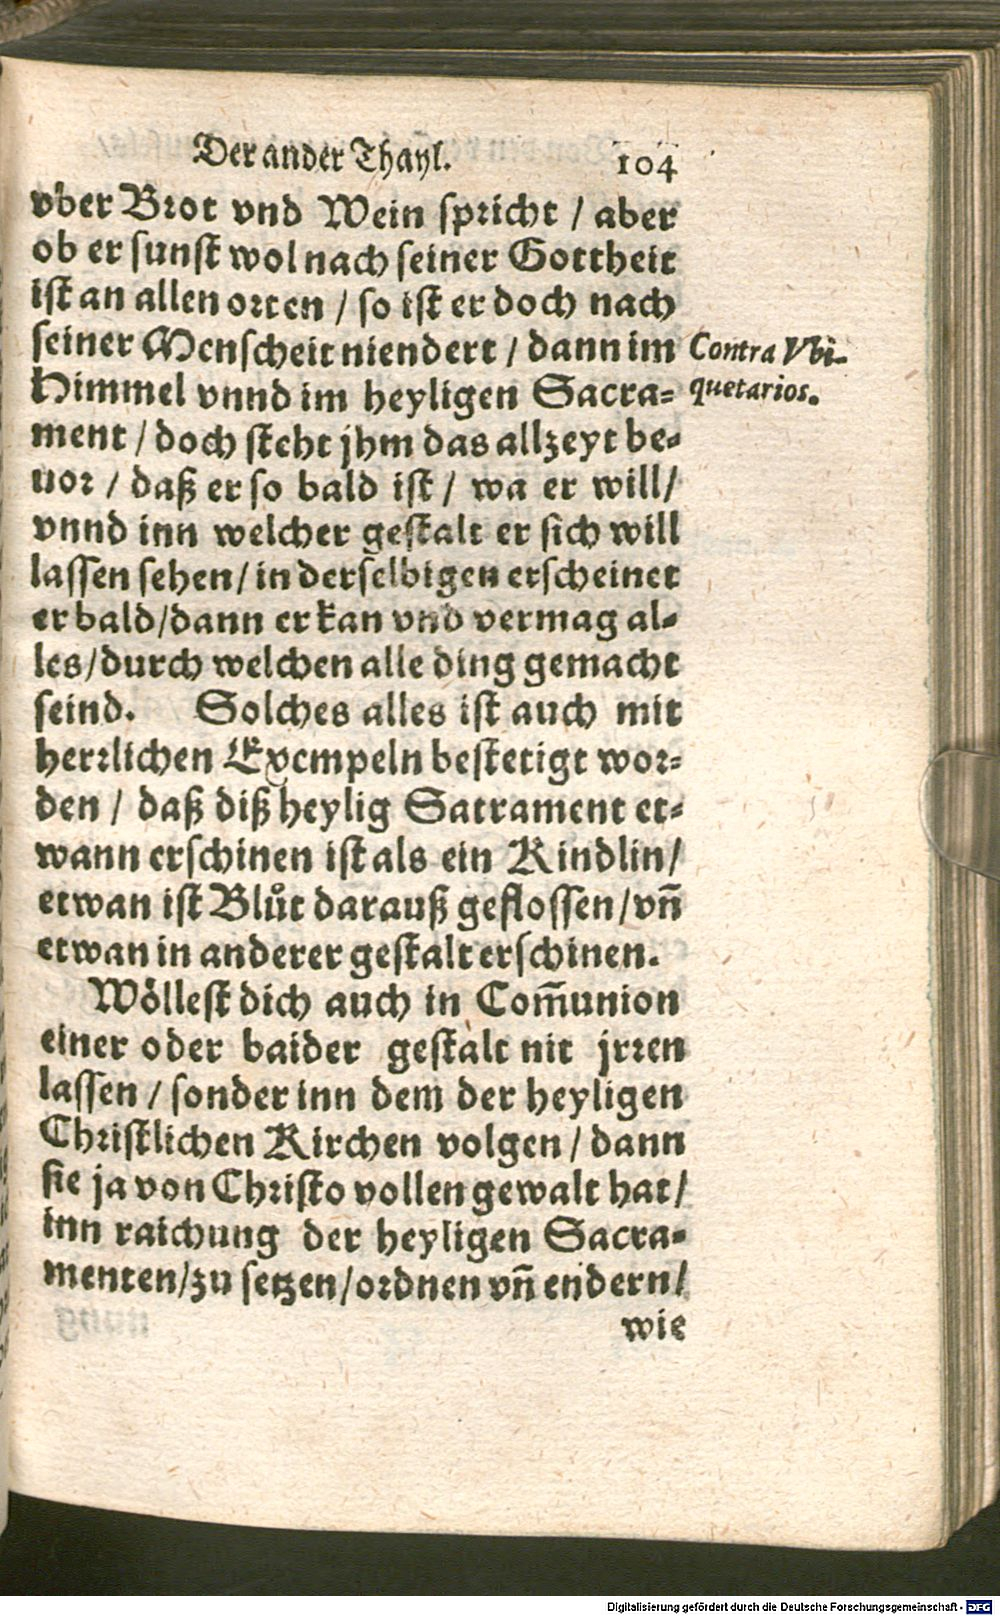 Der ander Thayl. 104
vber Brot vnd Wein spricht / aber
ob er sunst wol nach seiner Gottheit
ist an allen orten / so ist er doch nach
seiner Menscheit niendert / dann im
Contra Vbi-
Himmel vnnd im heyligen Sacra=
quetarios.
ment / doch steht jhm das allzeyt be=
uor / daß er so bald ist / wa er will /
vnnd inn welcher gestalt er sich will
lassen sehen / in derselbigen erscheinet
er bald / dann er kan vnd vermag al=
les / durch welchen alle ding gemacht
seind. Solches alles ist auch mit
herrlichen Exempeln bestetigt wor=
den / daß diß heylig Sacrament et=
wann erschinen ist als ein Kindlin /
etwan ist Blůt darauß geflossen / vñ
etwan in anderer gestalt erschinen.
Wöllest dich auch in Com̃union
einer oder baider gestalt nit jrren
lassen / sonder inn dem der heyligen
Christlichen Kirchen volgen / dann
sie ja von Christo vollen gewalt hat /
inn raichung der heyligen Sacra=
menten / zu setzen / ordnen vñ endern /
wie
Digitalisierung gefördert durch die Deutsche Forschungsgemeinschaft - DFG